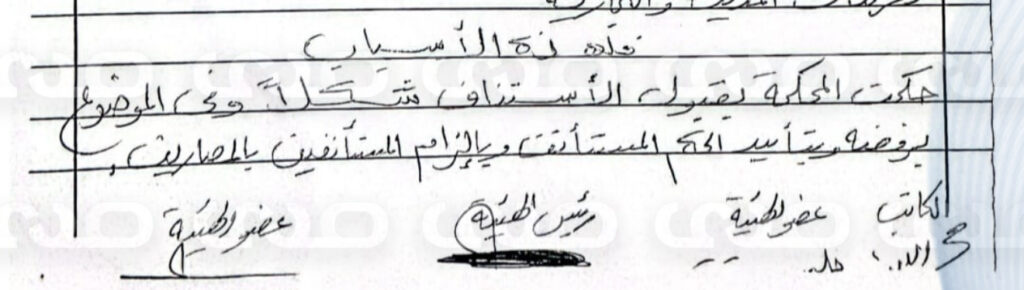 فلهذه الأسباب
حكمت المحكمة بقبول الأستئناف شكلاً وفى الموضوع
برفضه وبتأييد الحكم المستأنف وبإلزام المستأنفين بالمصاريف.
الكاتب عضو الهيئة رئيس الهيئة عضو الهيئة